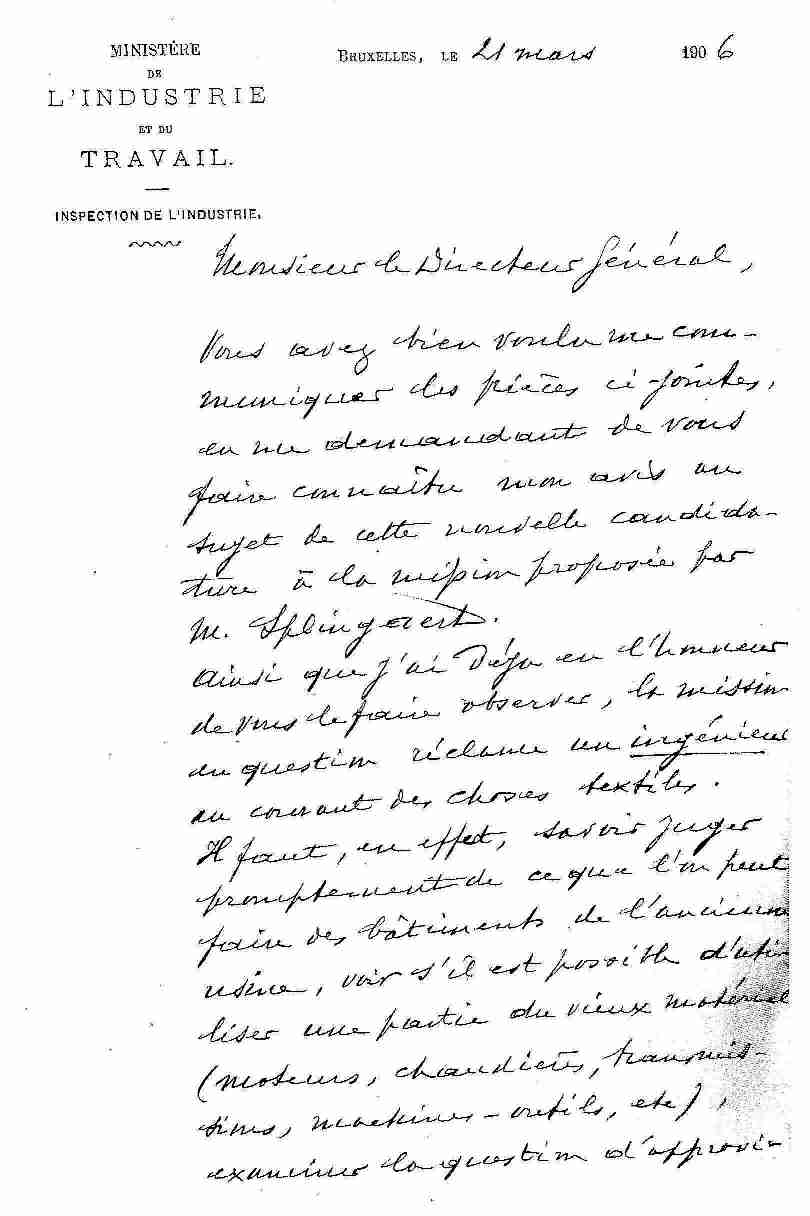 MINISTÈRE
DE
L'INDUSTRIE
ET DU
TRAVAIL.
INSPECTION DE L'INDUSTRIE.
BRUXELLES, LE 21 mars 1906
Monsieur le Directeur Général,
Vous avez bien voulu me com-
muniquer les pièces ci-jointes,
en me demandant de vous
faire connaître mon avis au
sujet de cette nouvelle candida-
ture à la mission proposée par
M. Splingaert.
Ainsi que j'ai déjà eu l'honneur
de vous le faire observer, la mission
en question réclame un ingénieur
au courant des choses textiles.
Il faut, en effet, savoir juger
promptement de ce que l'on peut
faire des bâtiments de l'ancienne
usine, voir s'il est possible d'uti-
liser une partie du vieux matériel
(moteurs, chaudières, transmis-
sions, machines-outils, etc),
examiner la question d'approvi-